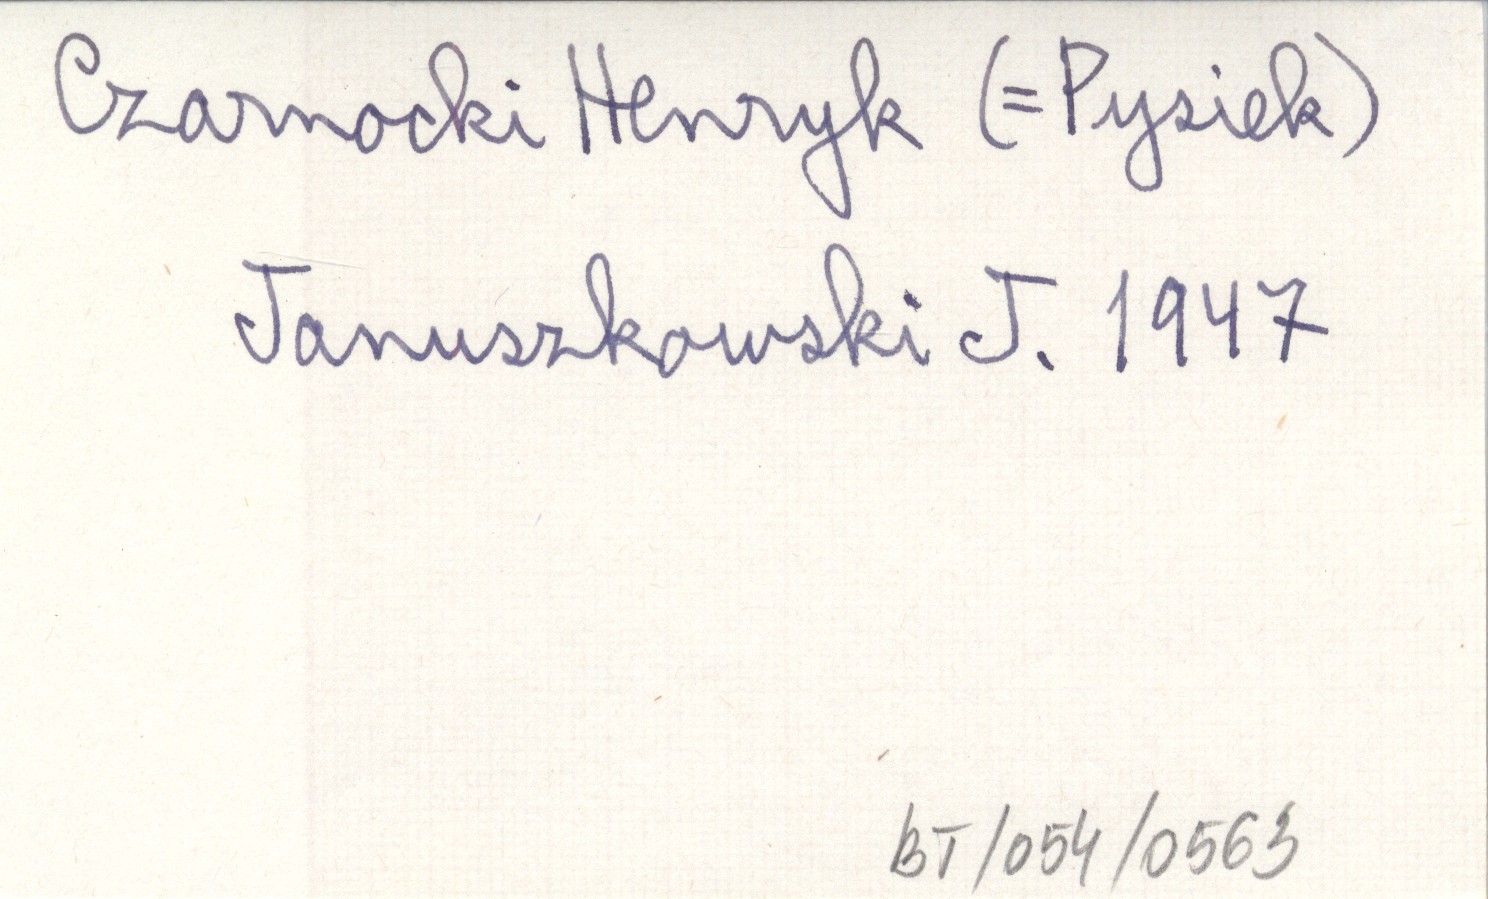 Czarnocki Henryk (=Pysiek)
Januszkowski J. 1947
BT/054/0563